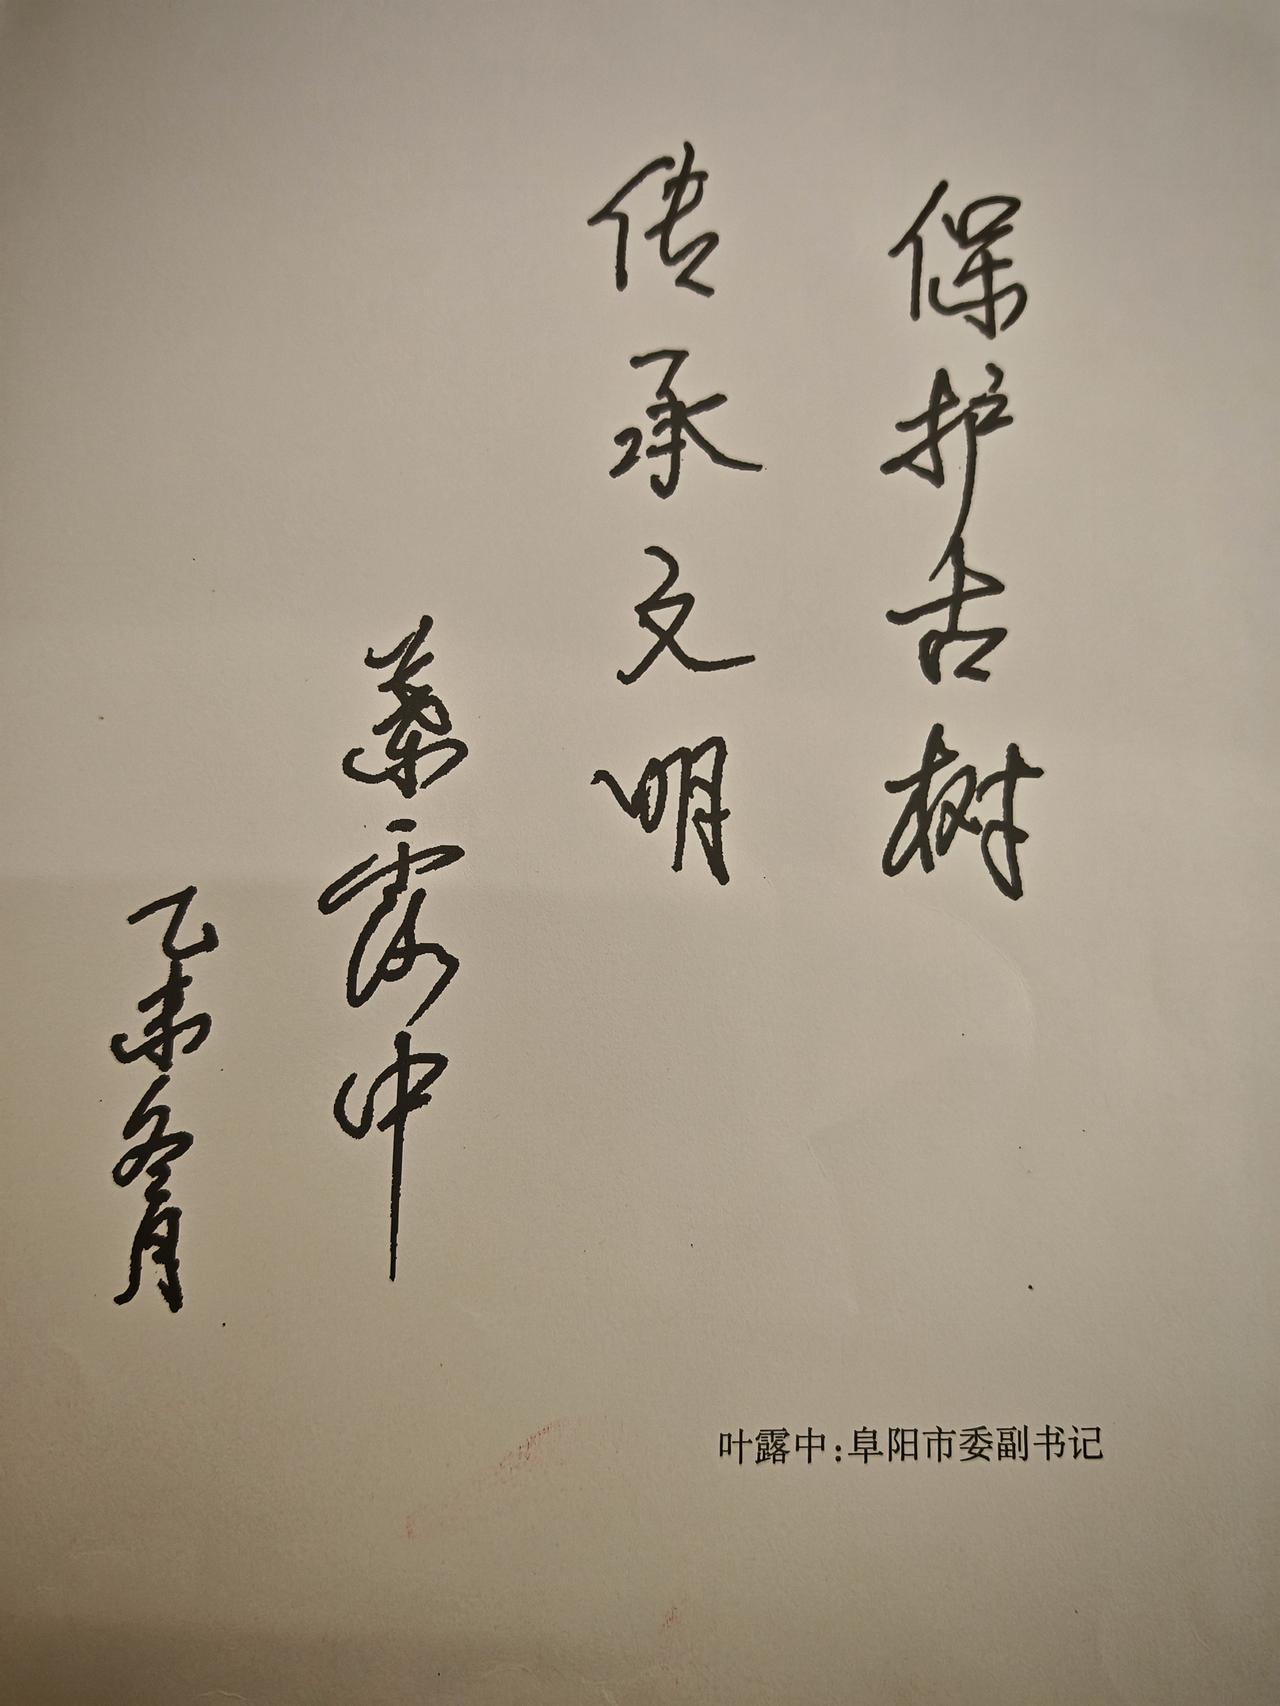 保护古树
传承文明
葉露中
乙未冬月
叶露中:阜阳市委副书记